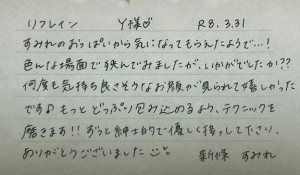 リフレイン Y様♡ R8.3.31
すみれのおっぱいから気になってもらえたようで…!
色んな場面で挟んでみましたが、いかがでしたか??
何度も気持ち良さそうなお顔が見られて嬉しかった
です♪もっとどっぷり包み込めるよう、テクニックを
磨きます!!ずっと紳士的で優しく接して下さり、
ありがとうございました 新條 すみれ